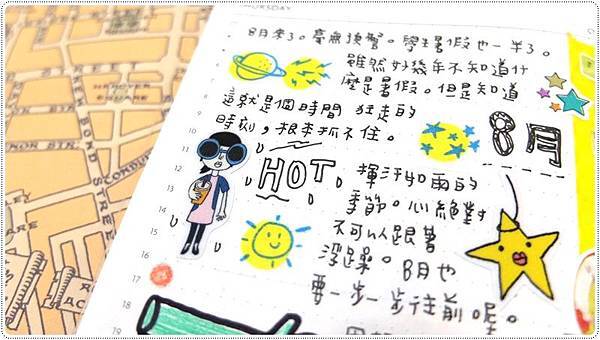 THURSDAY
8月來了。毫無預警。學生暑假也一半了。
雖然好幾年不知道什
麼是暑假。但是知道
這就是個時間 狂走的
時刻,根本抓不住。
8月
HOT
揮汗如雨的
季節。心絕對
不可以跟著
浮躁。8月也
要一步一步往前呢。
8
9
10
11
12
13
14
15
16
17
18
19
HANOVER
SQUARE
NEW BOND STREET
CONDUIT